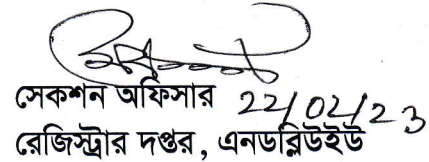 সেকশন অফিসার 22/02/23
রেজিস্ট্রার দপ্তর, এনডব্লিউইউ